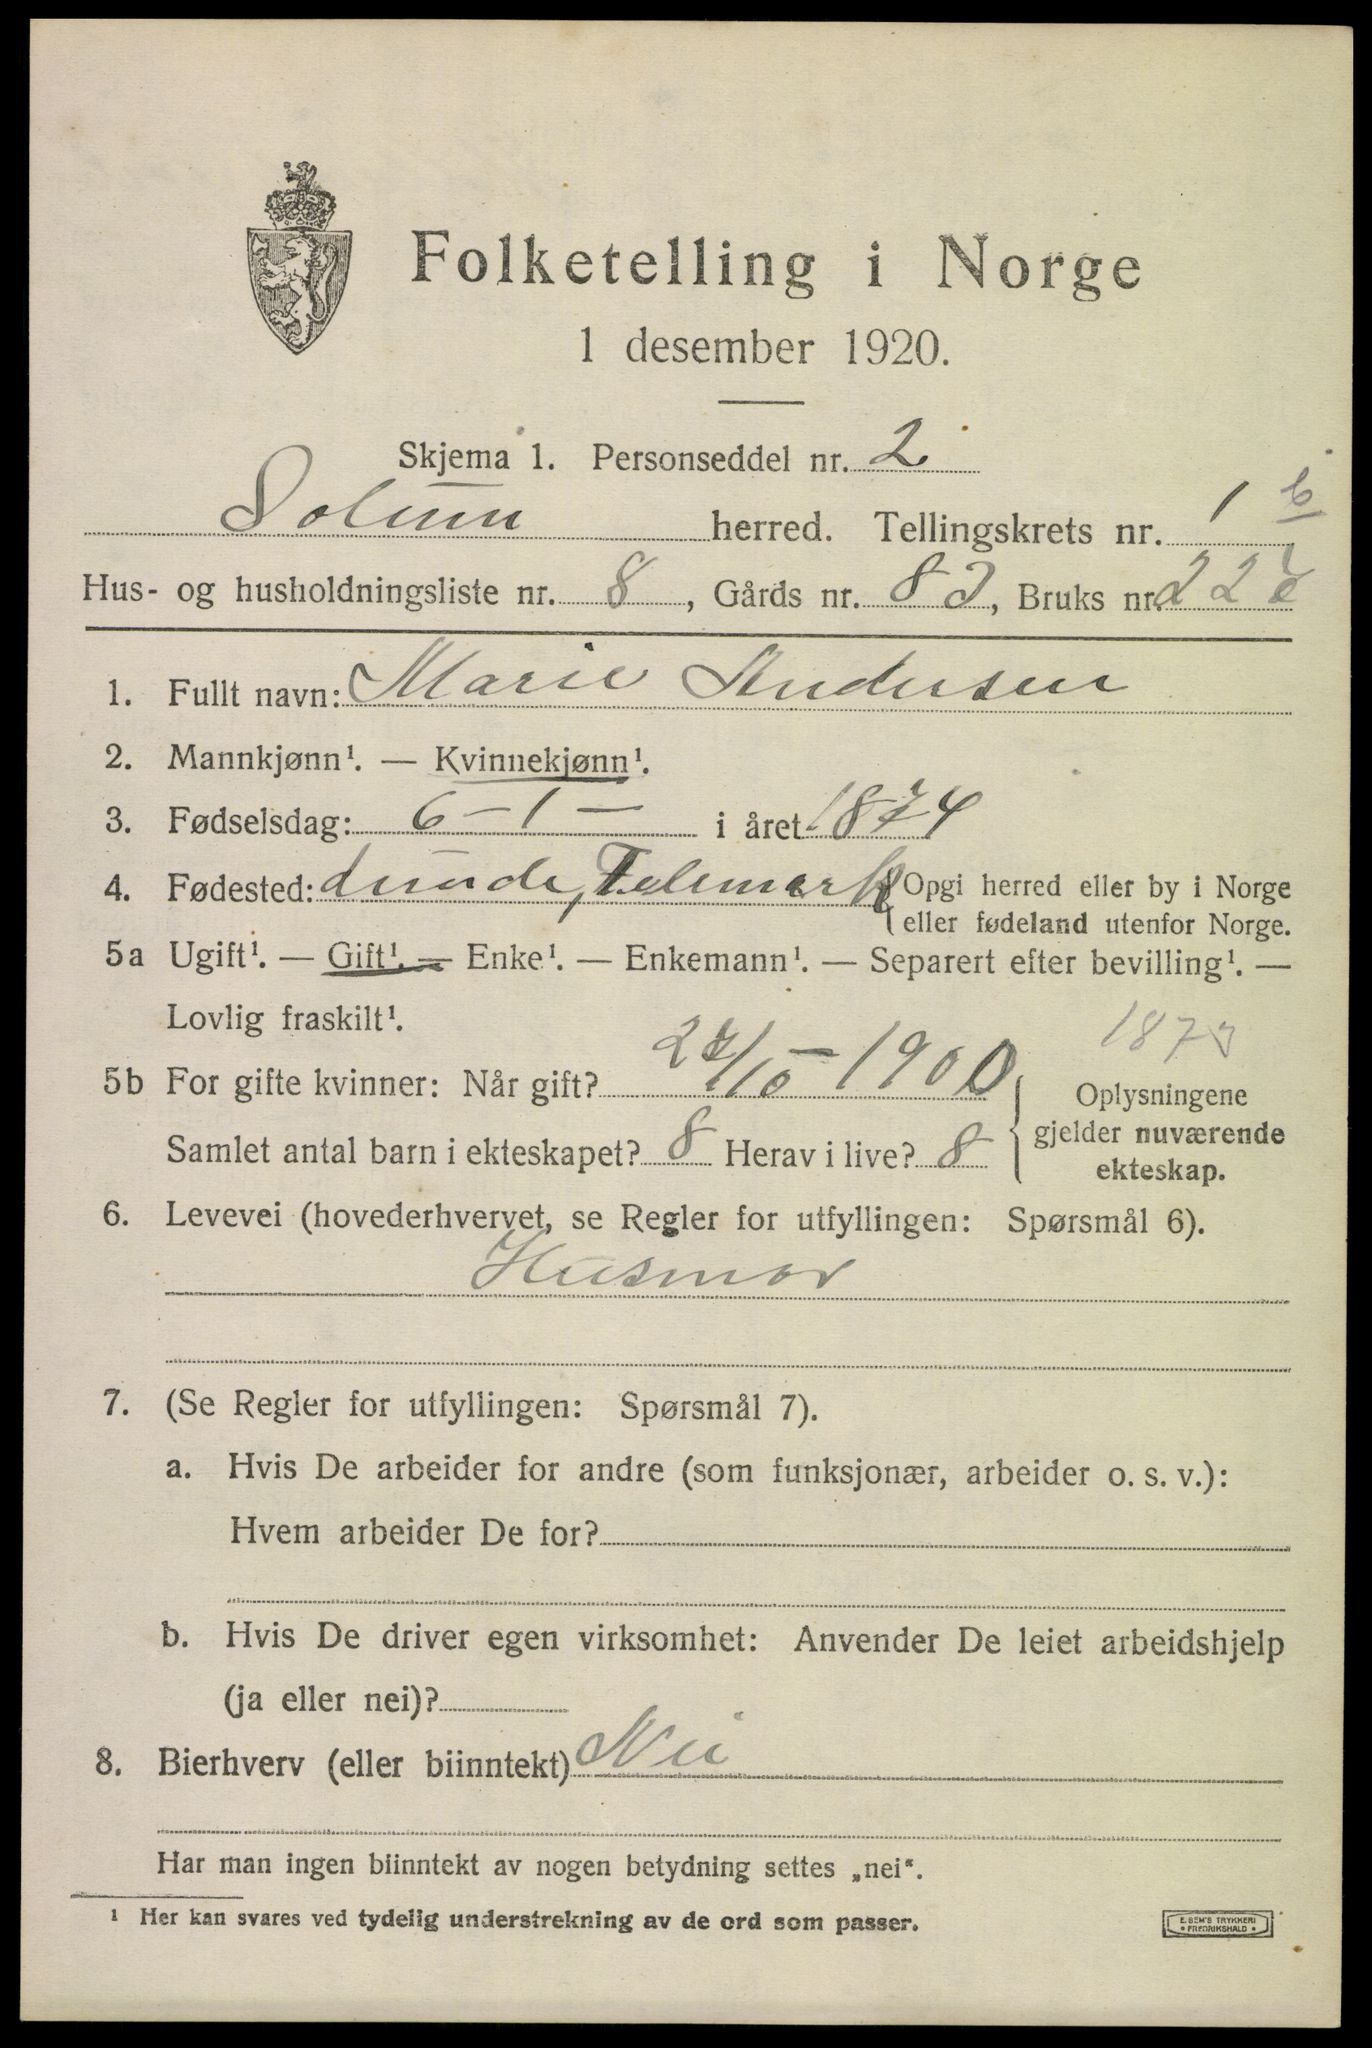 Folketelling i Norge
1 desember 1920.
Skjema 1. Personseddel nr. 2
Solum herred. Tellingskrets nr. 1 b
Hus- og husholdningsliste nr. 8, Gårds nr. 82, Bruks nr. 22
1. Fullt navn: Marie Andersen
2. Mannkjønn¹. — Kvinnekjønn¹.
3. Fødselsdag: 6 - 1 - i året 1874
4. Fødested: Lunde, Telemark {Opgi herred eller by i Norge
eller fødeland utenfor Norge.
5a Ugift¹. — Gift¹. — Enke¹. — Enkemann¹. — Separert efter bevilling¹. —
Lovlig fraskilt¹.
1873
5b For gifte kvinner: Når gift? /10 - 1900
Oplysningene
gjelder nuværende
ekteskap.
Samlet antal barn i ekteskapet? 8 Herav i live? 8
6. Levevei (hovederhvervet, se Regler for utfyllingen: Spørsmål 6).
Husmor
7. (Se Regler for utfyllingen: Spørsmål 7).
a. Hvis De arbeider for andre (som funksjonær, arbeider o. s. v.):
Hvem arbeider De for?
b. Hvis De driver egen virksomhet: Anvender De leiet arbeidshjelp
(ja eller nei)?
8. Bierhverv (eller biinntekt) Nei
Har man ingen biinntekt av nogen betydning settes „nei“.
¹ Her kan svares ved tydelig understrekning av de ord som passer.
E. SEM'S TRYKKERI
* FREDRIKSHALD *